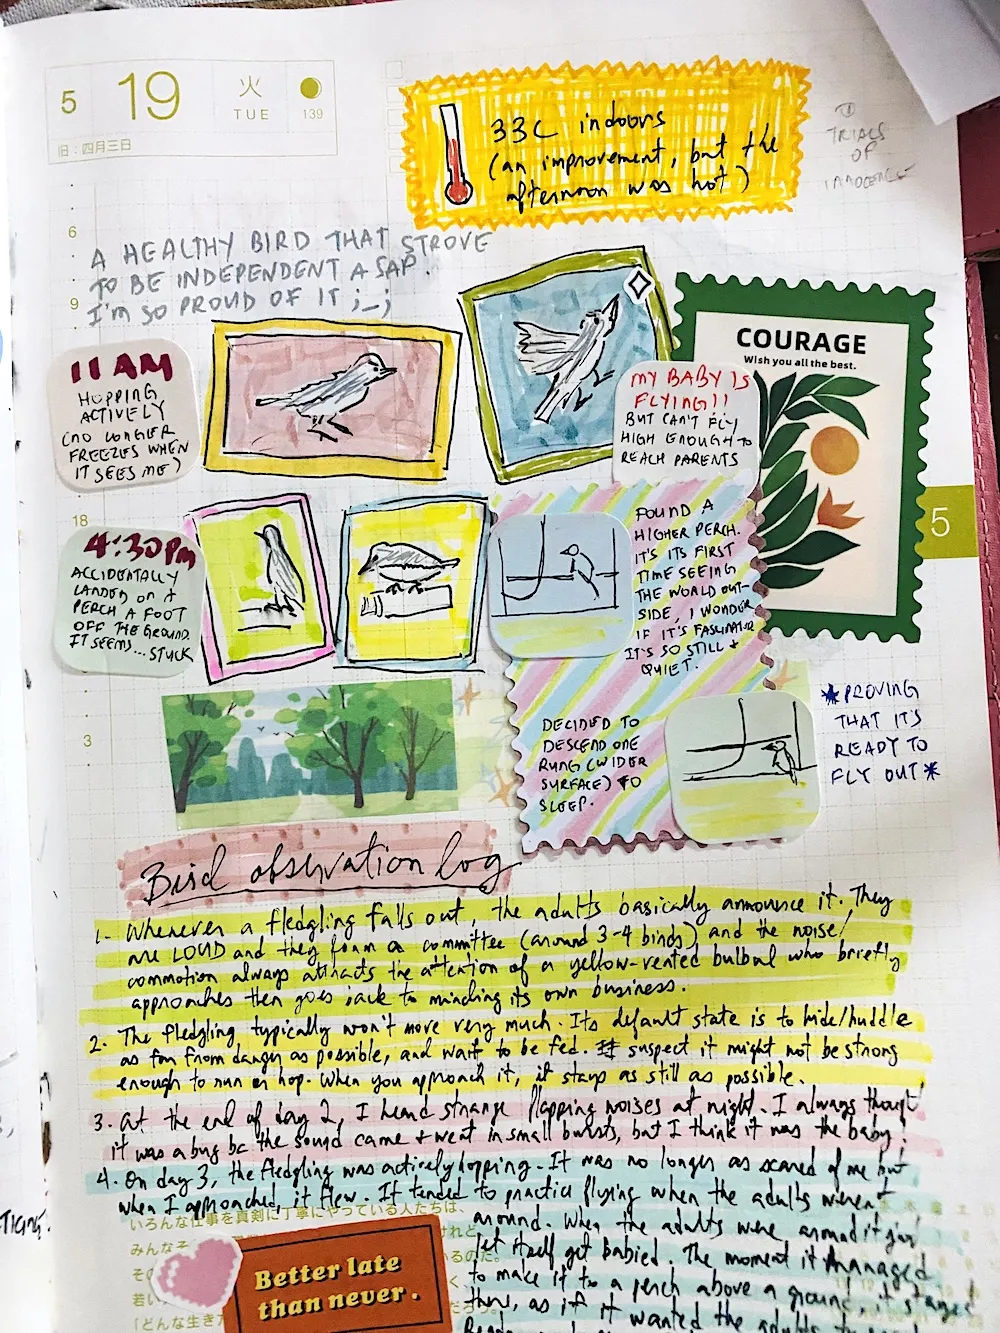 5 19 火 TUE 139
旧：四月三日
33C indoors
(an improvement, but the
afternoon was hot)
TRIALS
OF
INNOCENCE
6
9
18
3
5
A HEALTHY BIRD THAT STROVE
TO BE INDEPENDENT ASAP.
I'M SO PROUD OF IT ;_;
11 AM
HOPPING
ACTIVELY
(NO LONGER
FREEZES WHEN
IT SEES ME)
MY BABY IS
FLYING!!
BUT CAN'T FLY
HIGH ENOUGH TO
REACH PARENTS
COURAGE
Wish you all the best.
4:30PM
ACCIDENTALLY
LANDED ON A
PERCH A FOOT
OFF THE GROUND.
IT SEEMS... STUCK
FOUND A
HIGHER PERCH.
IT'S ITS FIRST
TIME SEEING
THE WORLD OUT-
SIDE, I WONDER
IF IT'S FASCINATED
IT'S SO STILL +
QUIET.
DECIDED TO
DESCEND ONE
RUNG (WIDER
SURFACE) TO
SLEEP.
*PROVING
THAT IT'S
READY TO
FLY OUT*
Bird observation log
1. Whenever a fledgling falls out, the adults basically announce it. They
are LOUD and they form a committee (around 3-4 birds) and the noise/
commotion always attracts the attention of a yellow-vented bulbul who briefly
approaches then goes back to minding its own business.
2. The fledgling typically won't move very much. Its default state is to hide/huddle
as far from danger as possible, and wait to be fed. I suspect it might not be strong
enough to run or hop. When you approach it, it stays as still as possible.
3. At the end of day 2, I heard strange flapping noises at night. I always thought
it was a bug bc the sound came + went in small bursts, but I think it was the baby!
4. On day 3, the fledgling was actively hopping. It was no longer as scared of me but
when I approached, it flew. It tended to practice flying when the adults weren't
around. When the adults were around it just
let itself get babied. The moment it managed
to make it to a perch above a ground, it stayed
there, as if it wanted the adults to
いろんな仕事を真剣に丁寧にやっている人たちは、
みんなそ
Better late
than never.
「どんな生き方